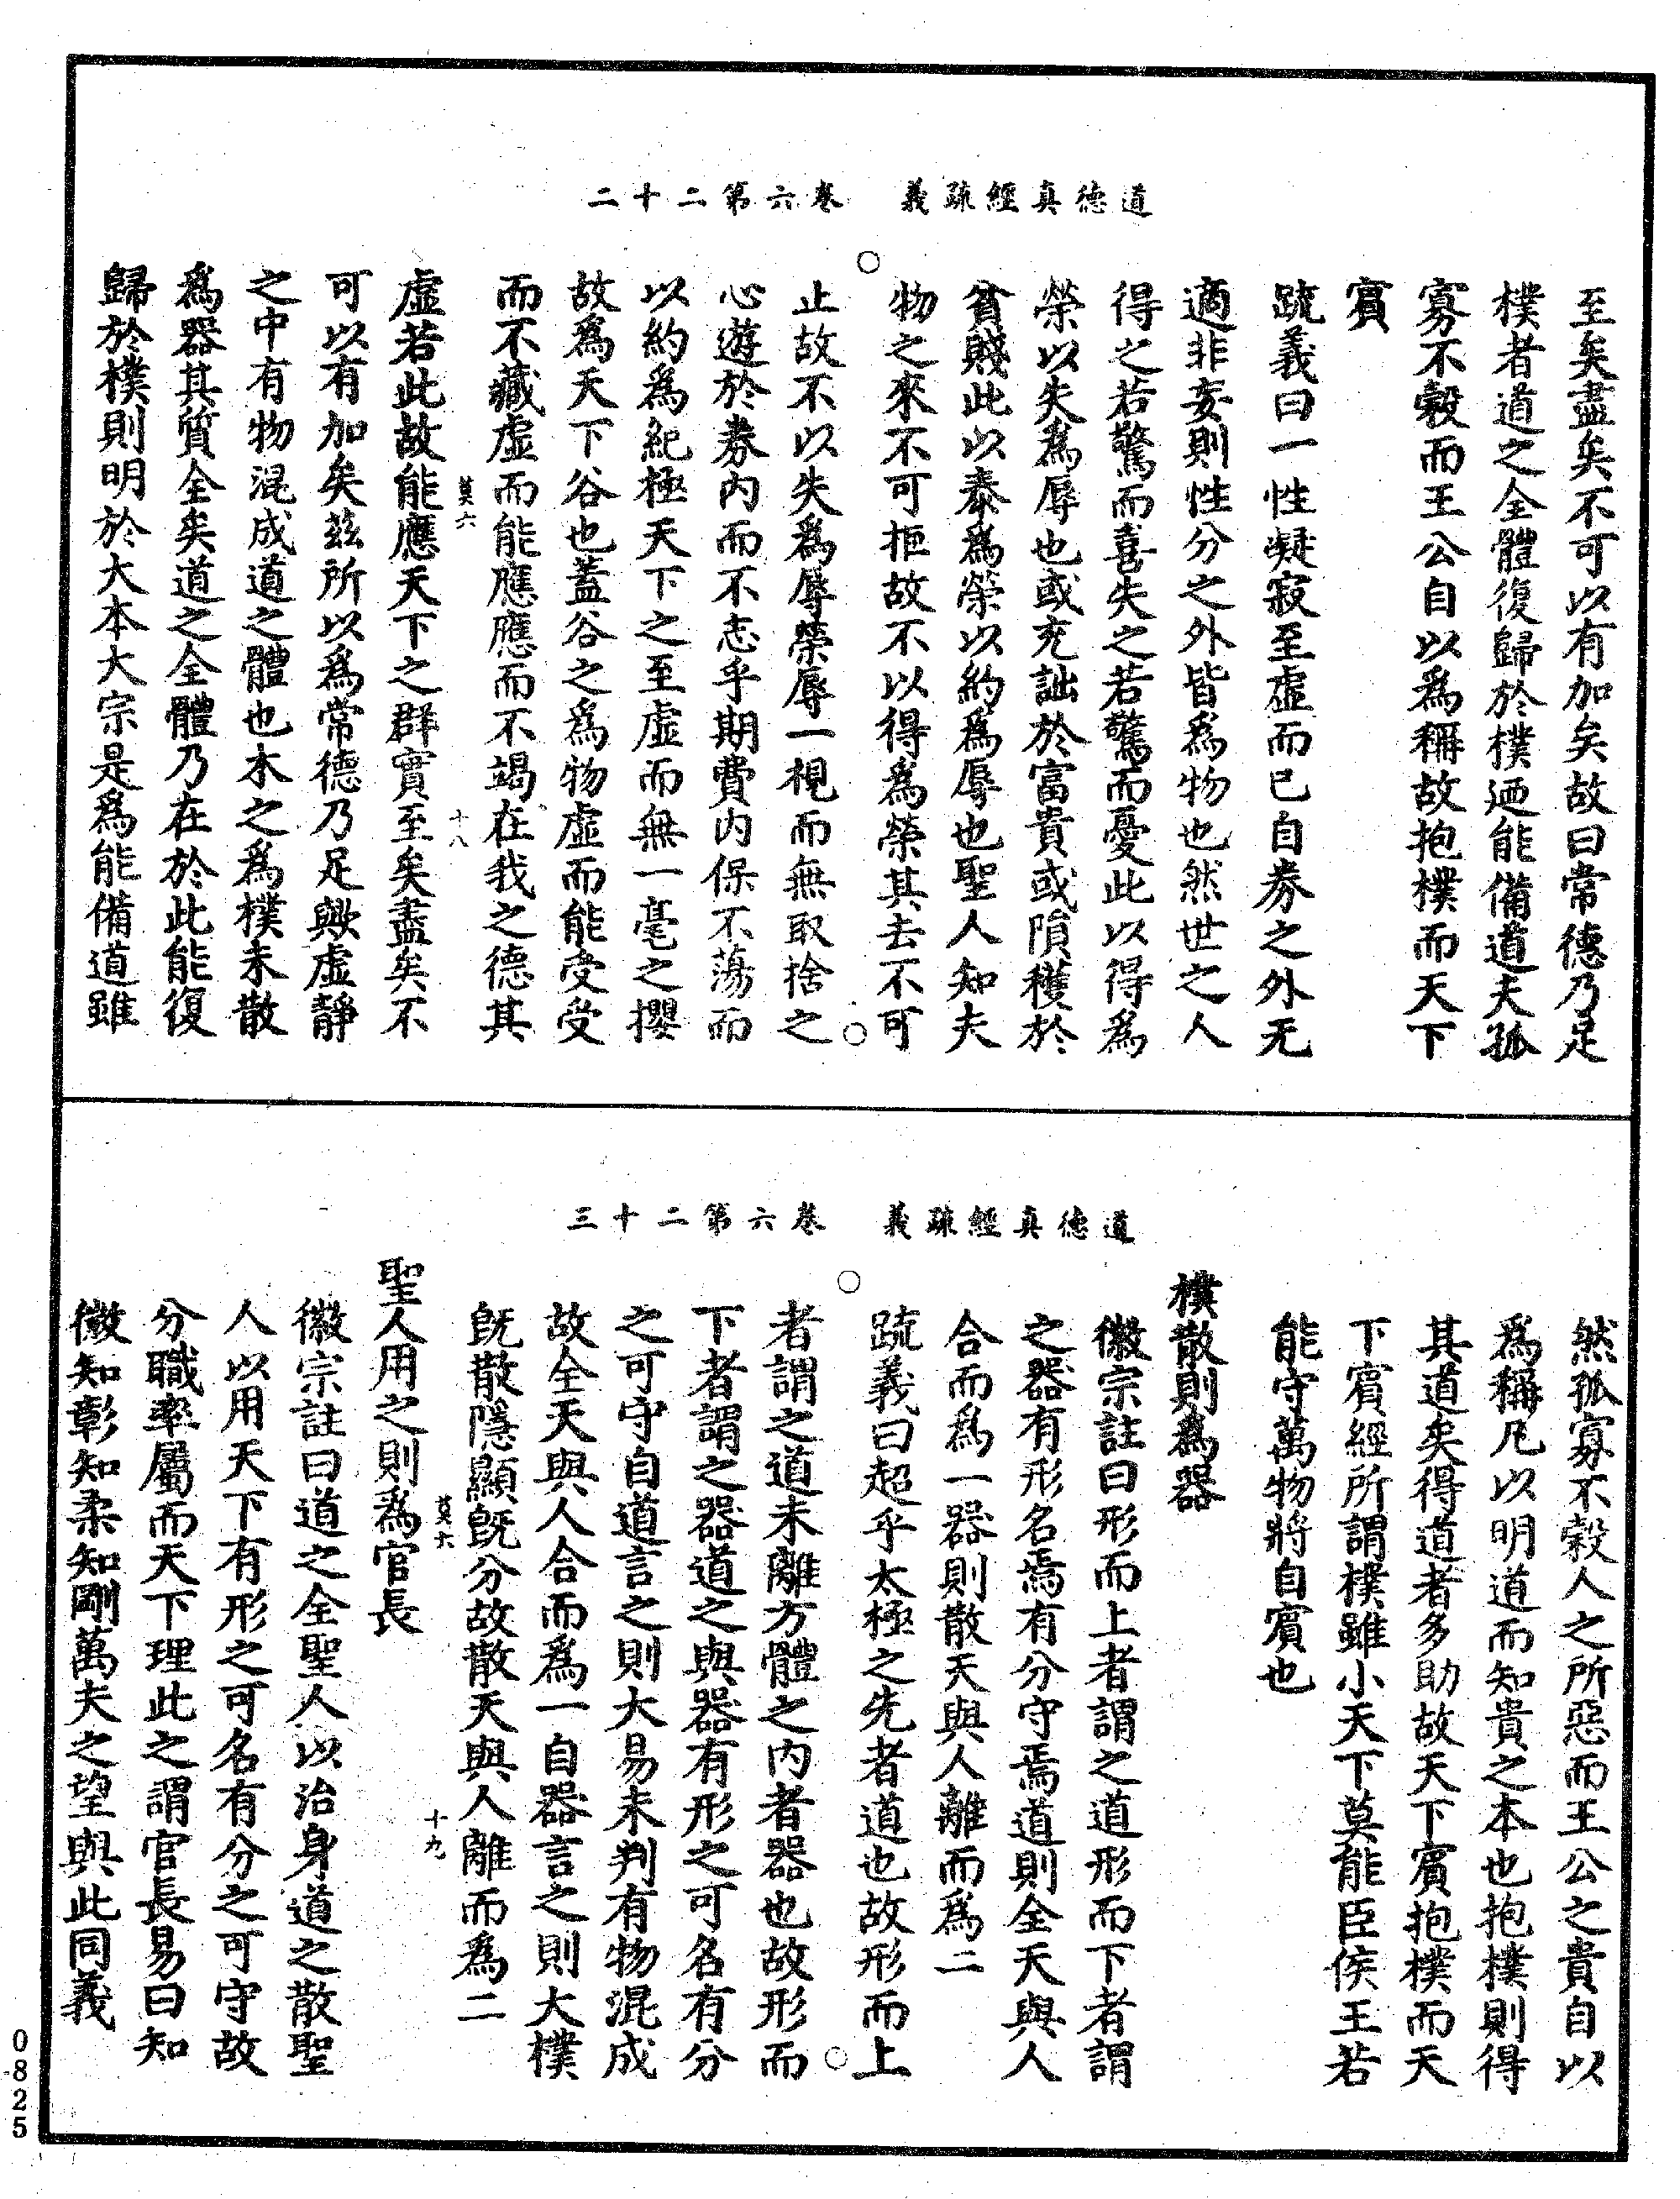 道德真經疏義　卷六第二十二
至矣盡矣不可以有加矣故曰常德乃足
樸者道之全體復歸於樸廼能備道夫孤
寡不穀而王公自以爲稱故抱樸而天下
賓
疏義曰一性凝寂至虛而已自券之外无
適非妄則性分之外皆爲物也然世之人
得之若驚而喜失之若驚而憂此以得爲
榮以失爲辱也或充詘於富貴或隕穫於
貧賤此以泰爲榮以約爲辱也聖人知夫
物之來不可拒故不以得爲榮其去不可
止故不以失爲辱榮辱一視而無取捨之
心遊於券內而不志乎期費內保不蕩而
以約爲紀極天下之至虛而無一毫之攖
故爲天下谷也蓋谷之爲物虛而能受受
而不藏虛而能應應而不竭在我之德其
莫六　十八
虛若此故能應天下之群實至矣盡矣不
可以有加矣茲所以爲常德乃足歟虛靜
之中有物混成道之體也木之爲樸未散
爲器其質全矣道之全體乃在於此能復
歸於樸則明於大本大宗是爲能備道雖
道德真經疏義　卷六第二十三
然孤寡不穀人之所惡而王公之貴自以
爲稱凡以明道而知貴之本也抱樸則得
其道矣得道者多助故天下賓抱樸而天
下賓經所謂樸雖小天下莫能臣侯王若
能守萬物將自賓也
樸散則爲器
徽宗註曰形而上者謂之道形而下者謂
之器有形名焉有分守焉道則全天與人
合而爲一器則散天與人離而爲二
疏義曰超乎太極之先者道也故形而上
者謂之道未離方體之內者器也故形而
下者謂之器道之與器有形之可名有分
之可守自道言之則大易未判有物混成
故全天與人合而爲一自器言之則大樸
旣散隱顯旣分故散天與人離而爲二
莫六　十九
聖人用之則爲官長
徽宗註曰道之全聖人以治身道之散聖
人以用天下有形之可名有分之可守故
分職率屬而天下理此之謂官長易曰知
微知彰知柔知剛萬夫之望與此同義
0825